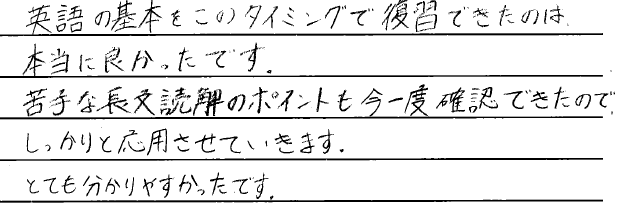 英語の基本をこのタイミングで復習できたのは
本当に良かったです.
苦手な長文読解のポイントも今一度確認できたので,
しっかりと応用させていきます.
とても分かりやすかったです.